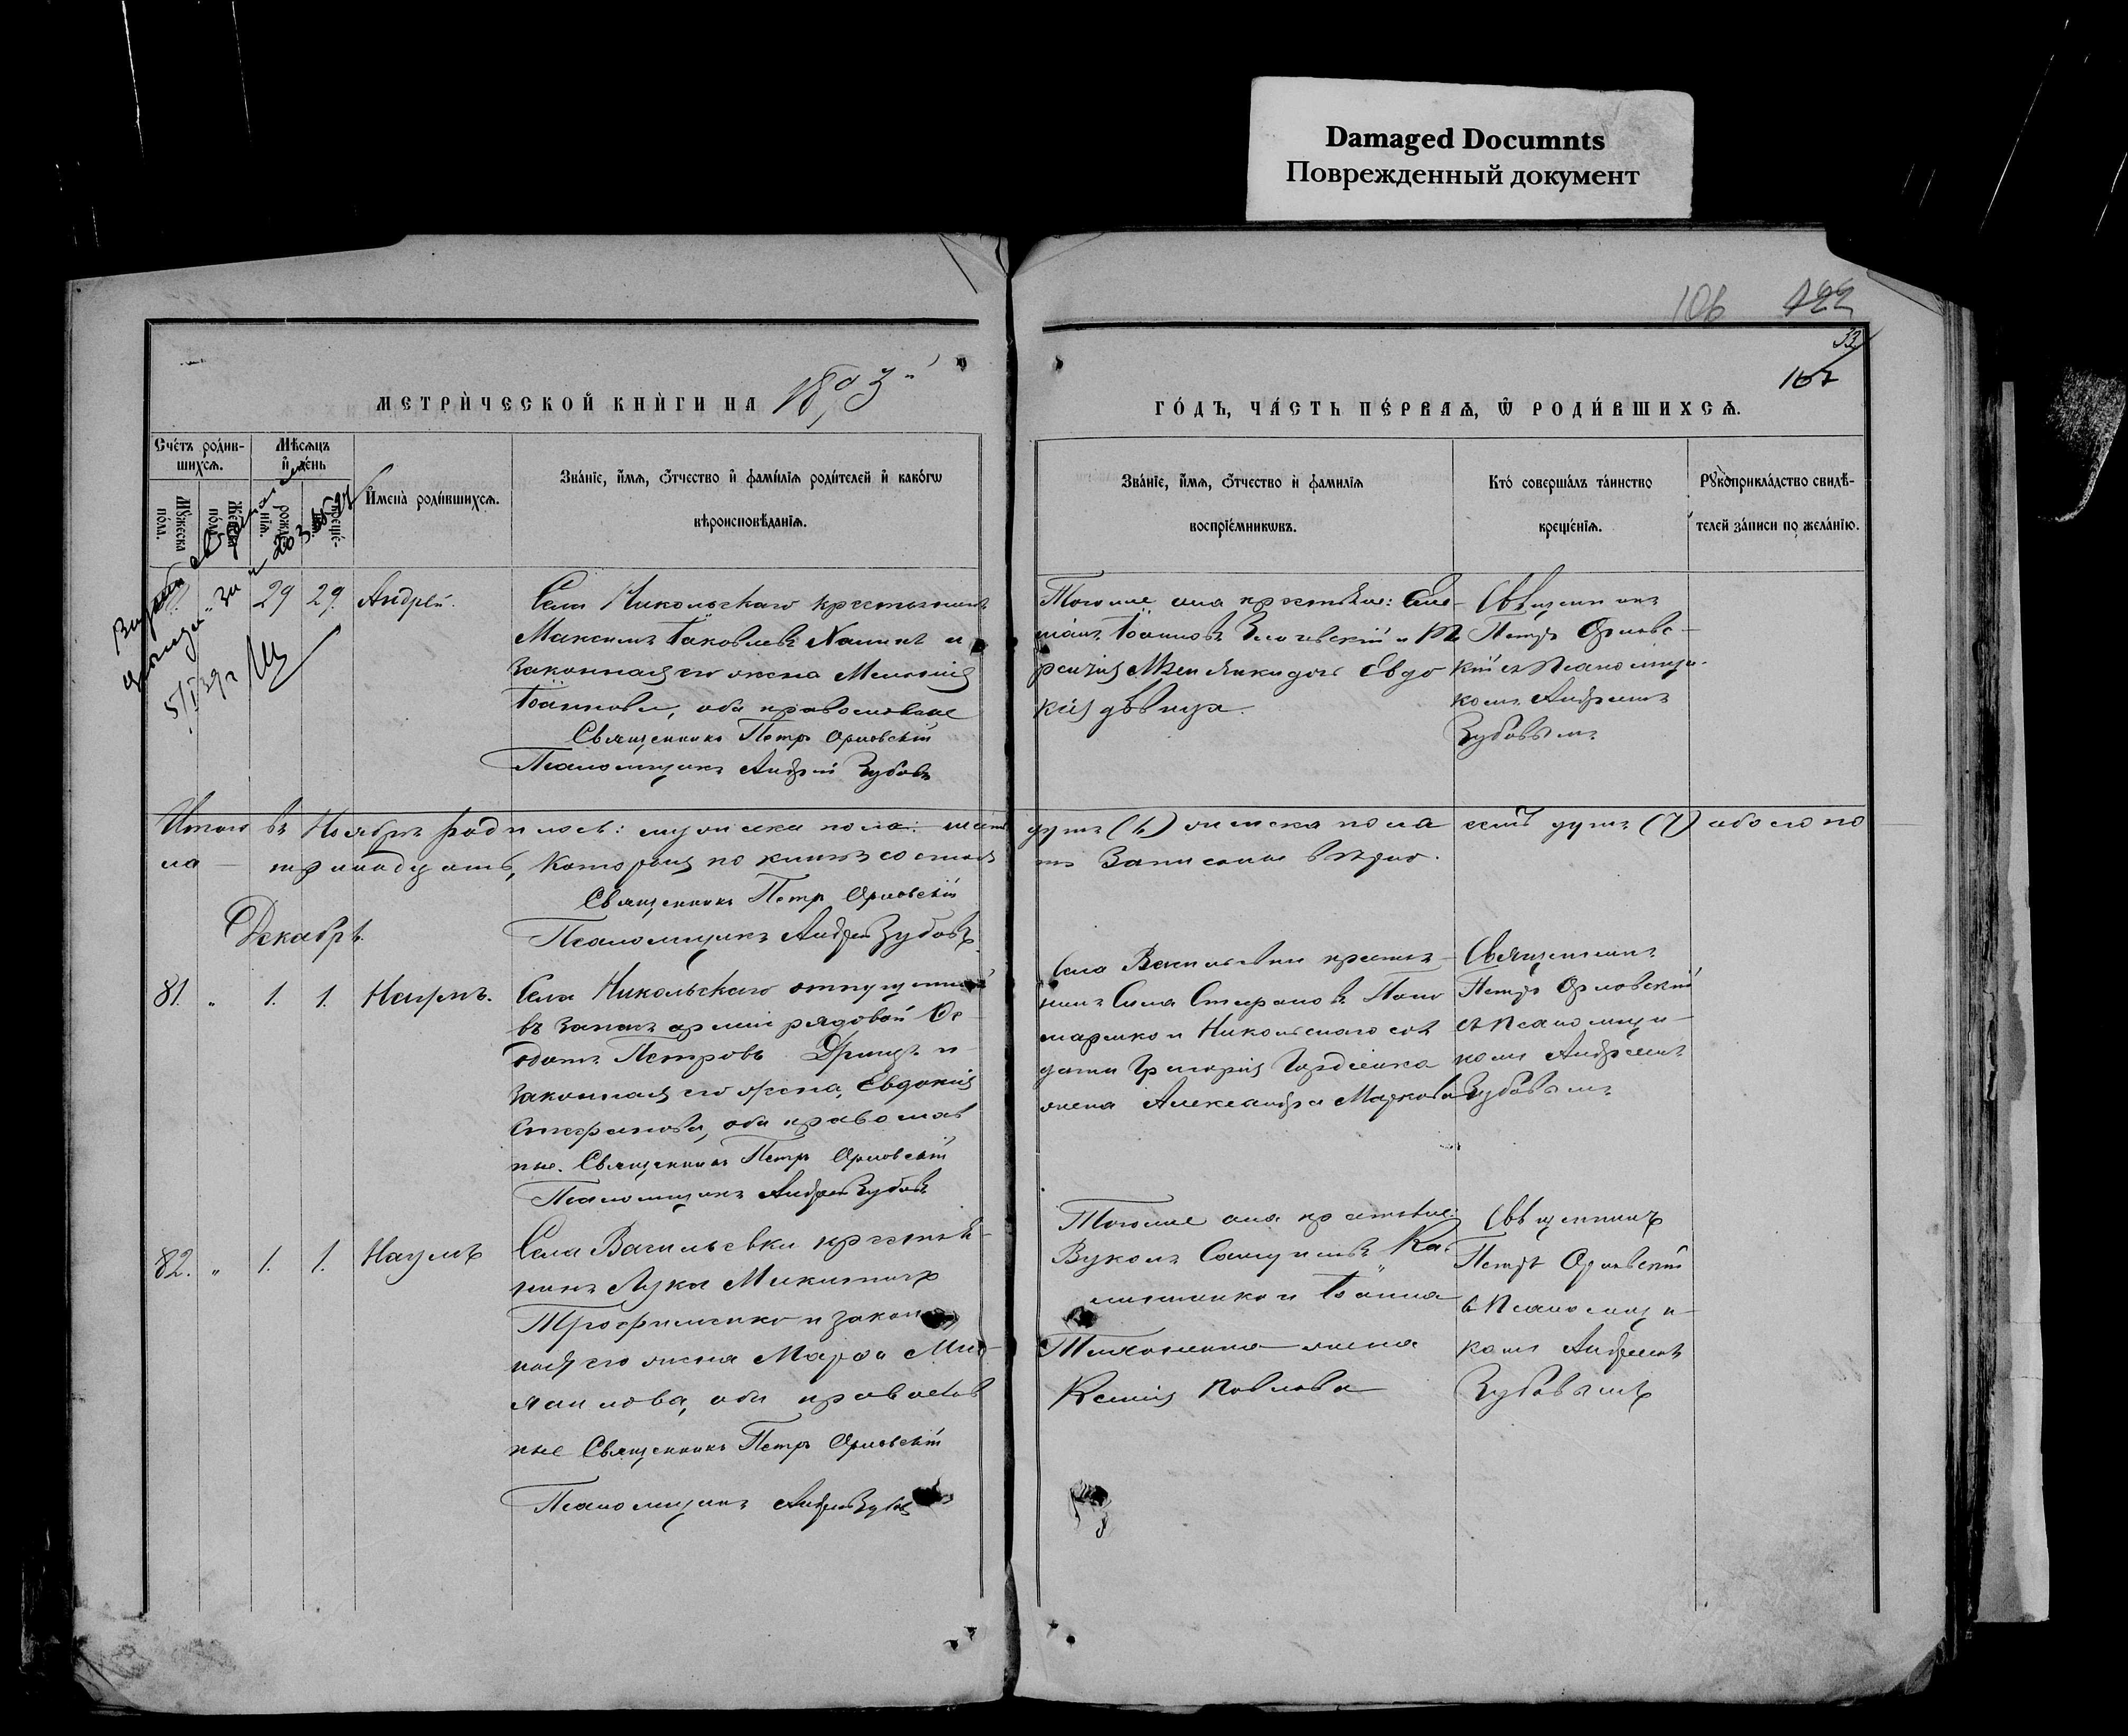 Damaged Documnts
Поврежденный документ
106 122
33
107
МЕТРИ́ЧЕСКОЙ КНИ́ГИ НА 1893
ГО́ДЪ, ЧА́СТЬ ПЕ́РВАѦ, Ѿ РОДИ́ВШИХСѦ.
Сче́тъ роди́в-
шихсѧ.
Мꙋ́жеска
по́ла.
Же́нска
по́ла.
Мѣ́сѧцъ
и҆ де́нь
рожде́-
нїѧ.
креще́-
И҆мена̀ роди́вшихсѧ.
Зва́нїе, и҆́мѧ, ѻ҆́тчество и҆ фами́лїѧ роди́телей и҆ како́гѡ
вѣроисповѣ́данїѧ.
Зва́нїе, и҆́мѧ, ѻ҆́тчество и҆ фами́лїѧ
воспрїе́мникѡвъ.
Кто̀ соверша́лъ та́инство
креще́нїѧ.
Рꙋкоприкла́дство свидѣ́-
телей за́писи по жела́нїю.
29 29 Андрей.
Села Никольскаго крестьянинъ
Максимъ Іаковлевъ и
законная его жена
Іоаннова, оба православные
Священникъ Петръ Орловскій
Псаломщикъ Андрей Зубовъ
Тогоже села крестьяне:
Іоанновъ и
дочь Евдо
кія дѣвица.
Священникъ
Петръ Орловс-
кій съ Псаломщи-
комъ Андреемъ
Зубовымъ
Итого въ Ноябрѣ родилось: мужеска пола: шесть душъ (6) женска пола семь душъ (7) обоего по
ла тринадцать, которыя по книгѣ состоя тъ Записаны вѣрно.
Священникъ Петръ Орловскій
Псаломщикъ Андрей Зубовъ
Декабрь.
81. " 1. 1. Наумъ.
Села Никольскаго отпущенный
въ запасъ арміи рядовой Ѳе
дотъ Петровъ и
законная его жена, Евдокія
Стефанова, оба православ
ные. Священникъ Петръ Орловскій
Псаломщикъ Андрей Зубовъ
Села Васильевки крестья
нинъ Сила Стефановъ Поно
маренко и Никольскаго сол
дата Григорія Гордіенка
жена Александра Маркова
Священникъ
Петръ Орловскій
съ Псаломщи-
комъ Андреемъ
Зубовымъ
82. " 1. 1. Наумъ
Села Васильевки крестья-
нинъ Лука Микитинъ
Трофименко и закон
ная его жена Марѳа
оба православ
ные Священникъ Петръ Орловскій
Псаломщикъ Андрей Зубовъ
Тогоже села крестьяне:
Вуколъ
и Іоанна
жена
Ксенія Павлова
Священникъ
Петръ Орловскій
съ Псаломщи-
комъ Андреемъ
Зубовымъ